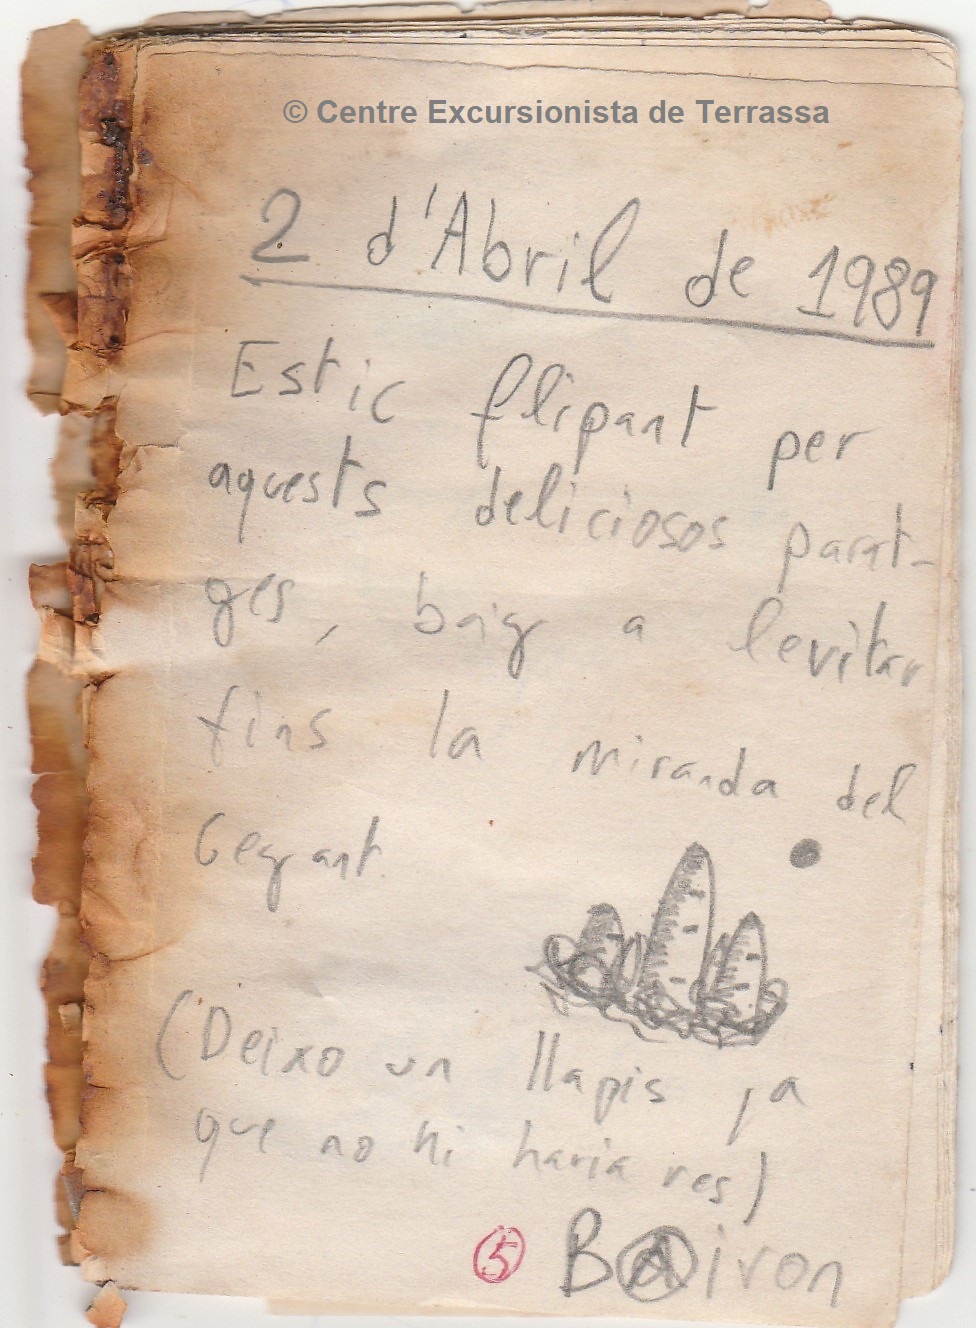 © Centre Excursionista de Terrassa
2 d'Abril de 1989
Estic flipant per
aquests deliciosos parat-
ges, baig a levitar
fins la miranda del
Gegant.
(Deixo un llapis ja
que no hi havia res)
5 BAiron